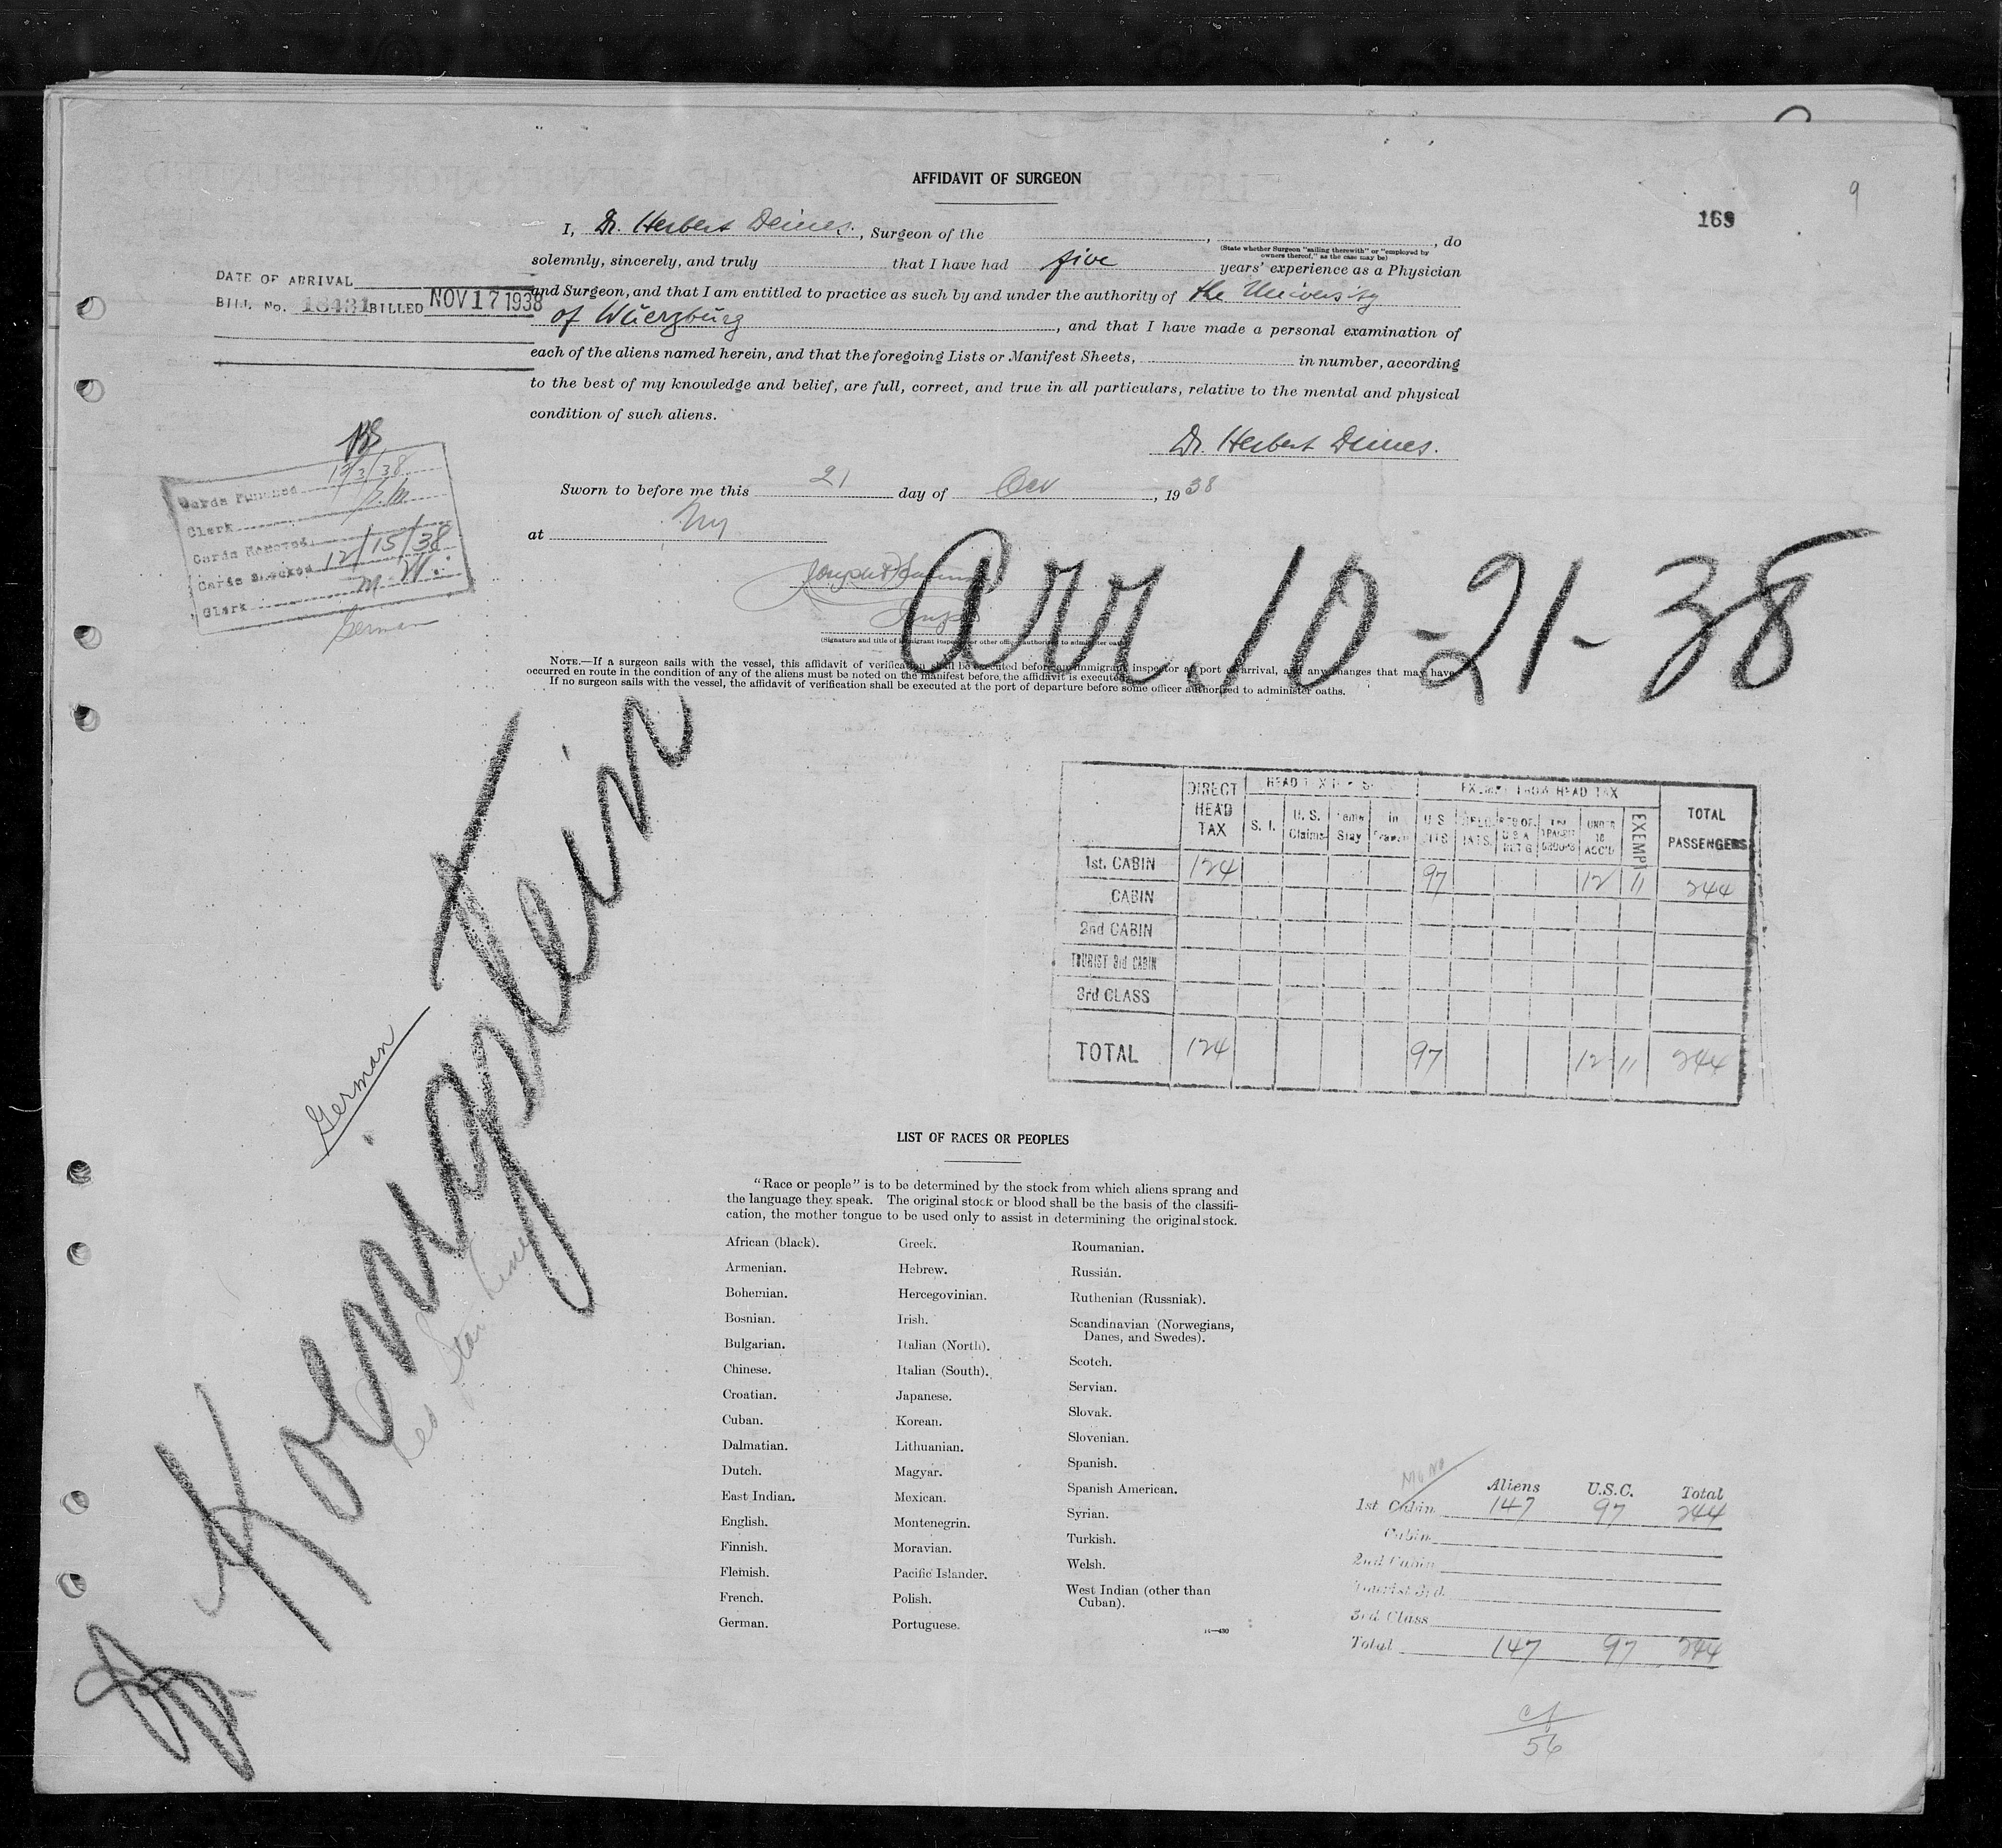 AFFIDAVIT OF SURGEON
9
169
I, Dr. Herbert Deines., Surgeon of the , , do
(State whether Surgeon "sailing therewith" or "employed by
owners thereof," as the case may be)
solemnly, sincerely, and truly that I have had five years' experience as a Physician
and Surgeon, and that I am entitled to practice as such by and under the authority of the University
of Wuerzburg , and that I have made a personal examination of
each of the aliens named herein, and that the foregoing Lists or Manifest Sheets, in number, according
to the best of my knowledge and belief, are full, correct, and true in all particulars, relative to the mental and physical
condition of such aliens.
Dr. Herbert Deines.
DATE OF ARRIVAL
BILL No. 18431 BILLED NOV 17 1938
Cards Punched 12/3/38
Clerk
Cards Removed
Cards Checked 12/15/38
Clerk M. W.
German
Sworn to before me this 21 day of Oct , 1938
at NY
Arr. 10-21-38
(Signature and title of immigrant inspector or other officer authorized to administer oaths)
NOTE.—If a surgeon sails with the vessel, this affidavit of verification shall be executed before an immigrant inspector at port of arrival, and any changes that may have
occurred en route in the condition of any of the aliens must be noted on the manifest before the affidavit is executed.
If no surgeon sails with the vessel, the affidavit of verification shall be executed at the port of departure before some officer authorized to administer oaths.
Koenigstein
German
DIRECT HEAD TAX
S. I.
U. S. Claims
Temp Stay
In Transit
EXEMPT FROM HEAD TAX
U S CITS
UNDER 16 ACC'D
EXEMPT
TOTAL PASSENGERS
1st. CABIN 124 97 12 11 244
CABIN
2nd CABIN
TOURIST 3rd CABIN
3rd CLASS
TOTAL 124 97 12 11 244
LIST OF RACES OR PEOPLES
"Race or people" is to be determined by the stock from which aliens sprang and
the language they speak. The original stock or blood shall be the basis of the classifi-
cation, the mother tongue to be used only to assist in determining the original stock.
African (black).
Armenian.
Bohemian.
Bosnian.
Bulgarian.
Chinese.
Croatian.
Cuban.
Dalmatian.
Dutch.
East Indian.
English.
Finnish.
Flemish.
French.
German.
Greek.
Hebrew.
Hercegovinian.
Irish.
Italian (North).
Italian (South).
Japanese.
Korean.
Lithuanian.
Magyar.
Mexican.
Montenegrin.
Moravian.
Pacific Islander.
Polish.
Portuguese.
Roumanian.
Russian.
Ruthenian (Russniak).
Scandinavian (Norwegians,
Danes, and Swedes).
Scotch.
Servian.
Slovak.
Slovenian.
Spanish.
Spanish American.
Syrian.
Turkish.
Welsh.
West Indian (other than
Cuban).
14—430
Aliens U.S.C. Total
1st Cabin 147 97 244
Cabin
2nd Cabin
Tourist 3rd
3rd Class
Total 147 97 244
56